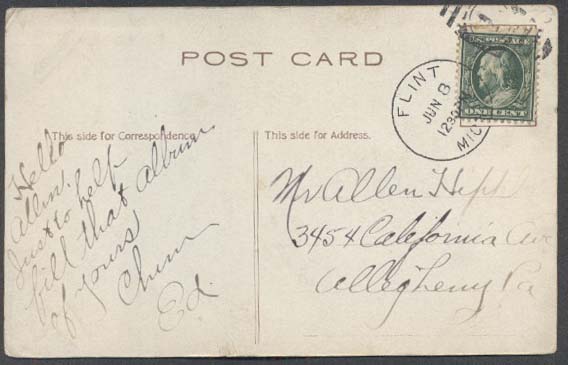 POST CARD
FLINT
JUN 8
1230
MICH
U.S. POSTAGE
ONE CENT
This side for Correspondence.
Hello
Allen.
Just to help
fill that album
of yours
Chum
Ed.
This side for Address.
Mr Allen
3454 California Ave
Allegheny Pa